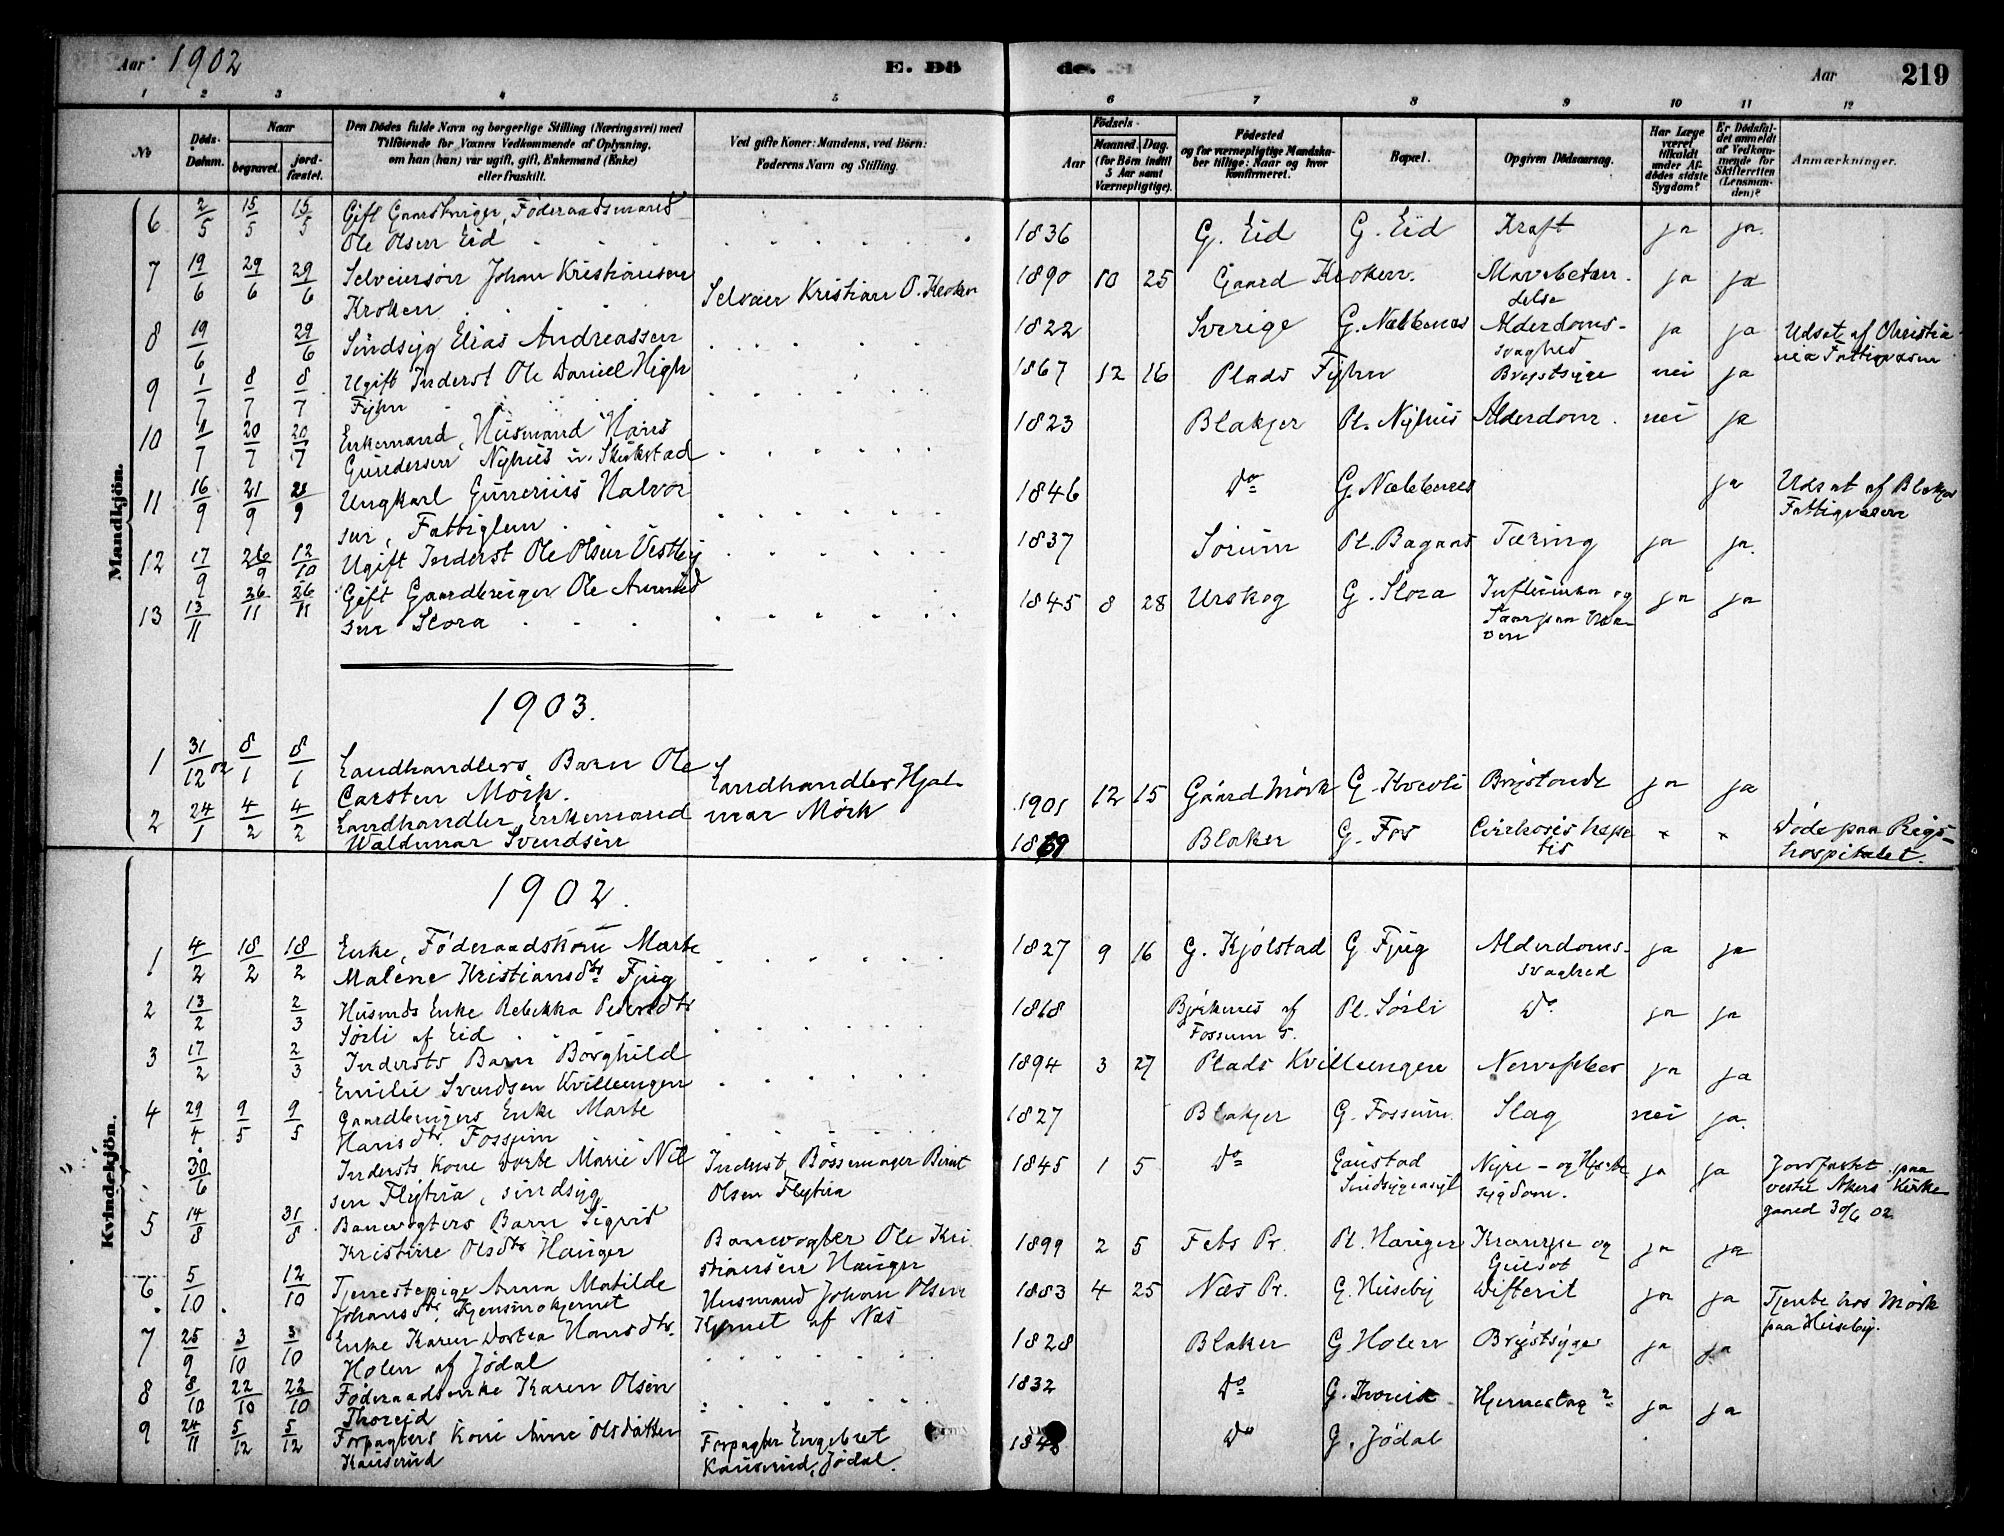 Aar 1902
E. Dö de.
Aar 219
1 2 3 4 5 6 7 8 9 10 11 12
No
Döds-Datum.
Naar
begravet.
jord-fæstet.
Den Dödes fulde Navn og borgerlige Stilling (Næringsvei) med
Tilföiende for Voxnes Vedkommende af Oplysning,
om han (hun) var ugift, gift, Enkemand (Enke)
eller fraskilt.
Ved gifte Koner: Mandens, ved Börn:
Faderens Navn og Stilling.
Födsels-
Aar
Maaned. Dag.
(for Börn indtil
5 Aar samt
Værnepligtige).
Födested
og for værnepligtige Mandska-
ber tillige: Naar og hvor
konfirmeret.
Bopæl.
Opgiven Dödsaarsag.
Har Læge
været
tilkaldt
under Af-
dödes sidste
Sygdom?
Er Dödsfal-
det anmeldt
af Vedkom-
mende for
Skifteretten
(Lensman-
den)?
Anmærkninger.
Mandkjön.
6 2/5 15/5 15/5 Gift Gaardbruger, Føderaadsmand
Ole Olsen Eid 1836 G. Eid G. Eid Kraft ja ja
7 19/6 29/6 29/6 Selveiersøn Johan Kristiansen
Kroken Selveier Kristian O. Kroken 1890 10 25 Gaard Kroken Mavebetæn-
delse ja ja
8 19/6 29/6 Sindsyg Elias Andreassen 1822 Sverige G. Næbbenæs Alderdoms-
svaghed ja ja Udsat af Christia-
nia Fattigvæsen
9 1/7 8/7 8/7 Ugift Inderst Ole Daniel High
Fyhn 1867 12 16 Plads Fyhn Brystsyge nei ja
10 20/7 20/7 Enkemand, Husmand Hans
Gundersen Nyhus u. Skukstad 1823 Blakjer Pl. Nyhus Alderdom nei ja
11 16/9 21/9 21/9 Ungkarl Gunerius Halvor
sen, Fattiglem 1846 Do G. Næbbenes ja Udsat af Blakjer
Fattigvæsen
12 17/9 26/9 12/10 Ugift Inderst Ole Olsen Vestby 1837 Sørum Pl. Bagaas Tæring ja ja
13 13/11 26/11 26/11 Gift Gaardbruger Ole Amund
sen Slora 1845 8 28 Urskog G. Slora Influensa og
Saar paa
ven ja ja
1903.
1 31/12 02 8/1 8/1 Landhandlers Barn Ole
Carsten Mörk. Landhandler Hjal-
mar Mörk 1901 12 15 Gaard Mörk G. Brystonde ja ja
2 24/1 4/2 4/2 Landhandler, Enkemand
Waldemar Svendsen 1869 Blaker G. Fos Cirrhosis hepa
tis × × Døde paa Rigs-
hospitalet.
Kvindekjön.
1902.
1 4/2 18/2 18/2 Enke, Føderaadskone Marte
Malene Kristiansdtr Fjug 1827 9 16 G. Kjølstad G Fjug Alderdoms-
svaghed ja ja
2 13/2 2/3 Husmds Enke Rebekka Pedersdtr
Sørli af Eid 1868 Bjørkenes af
Fossum S. Pl. Sørli Do ja ja
3 17/2 2/3 Indersts Barn Borghild
Emilie Svendsen Kvillungen 1894 3 27 Plads Kvillungen Nervefeber ja ja
4 29/4 9/5 9/5 Gaardbrugers Enke Marte
Hansdtr. Fossum 1827 Blakjer G. Fossum Slag nei ja
30/6 Indersts Kone Dorte Marie Nil
sen Flytua, sindsyg Inderst, Bernt
Olsen Flytua 1845 1 5 Do Gaustad
Sindsygeasyl Nyre- og Hjerte
sygdom. ja ja Jordfæstet paa
vestre Akers Kirke
gaard 30/6 02
5 14/8 31/8 Banevogters Barn Sigrid
Kristine Olsdtr Hauger Banevogter Ole Kri
stiansen Hauger 1899 2 5 Fets Pr. Pl. Hauger Krampe og
Gulsot ja ja
6 5/10 12/10 Tjenestepige Anna Matilde
Johansdtr, Husmand Johan Olsen
Kjernet af Næs 1883 4 25 Næs Pr. G. Huseby Difterit ja ja Tjente hos Mörk
paa Huseby.
7 25/9 3/10 3/10 Enke Karen Dortea Hansdtr.
Holen af Jødal 1828 Blaker G Holen Brystsyge ja ja
8 8/10 22/10 22/10 Føderaadsenke Karen Olsen
Thoreid 1832 Do G. Hjerneslag? ja ja
9 24/11 5/12 5/12 Forpagters Kone Anne Olsdatter
Kauserud Forpagter Engebret
Kauserud, Jødal. Do G. Jødal